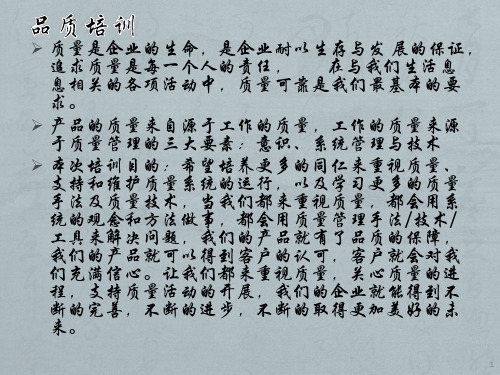 品质培训
质量是企业的生命，是企业耐以生存与发展的保证，
追求质量是每一个人的责任， 在与我们生活息
息相关的各项活动中，质量可靠是我们最基本的要
求。
产品的质量来自源于工作的质量，工作的质量来源
于质量管理的三大要素：意识、系统管理与技术
本次培训目的：希望培养更多的同仁来重视质量、
支持和维护质量系统的运行，以及学习更多的质量
手法及质量技术，当我们都来重视质量，都会用系
统的观念和方法做事，都会用质量管理手法/技术/
工具来解决问题，我们的产品就有了品质的保障，
我们的产品就可以得到客户的认可，客户就会对我
们充满信心。让我们都来重视质量，关心质量的进
程，支持质量活动的开展，我们的企业就能得到不
断的完善，不断的进步，不断的取得更加美好的未
来。
1